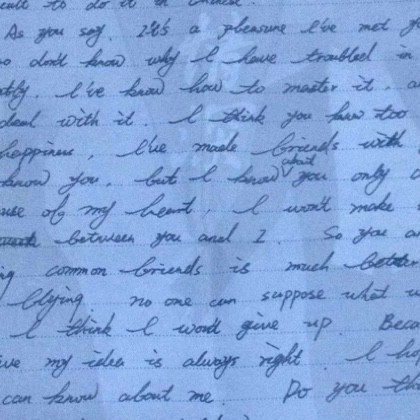 to do it in
As you say. It's a pleasure I've met
so don't know why I have troubled in
I've know how to master it, a
deal with it. I think you have too
happiness, I've made friends with
know you, but I know about you only
use of my heart, I won't make
between you and I. So you a
common friends is much better
no one can suppose what w
I think I won't give up. Beca
ve my idea is always right. I ho
can know about me. Do you th